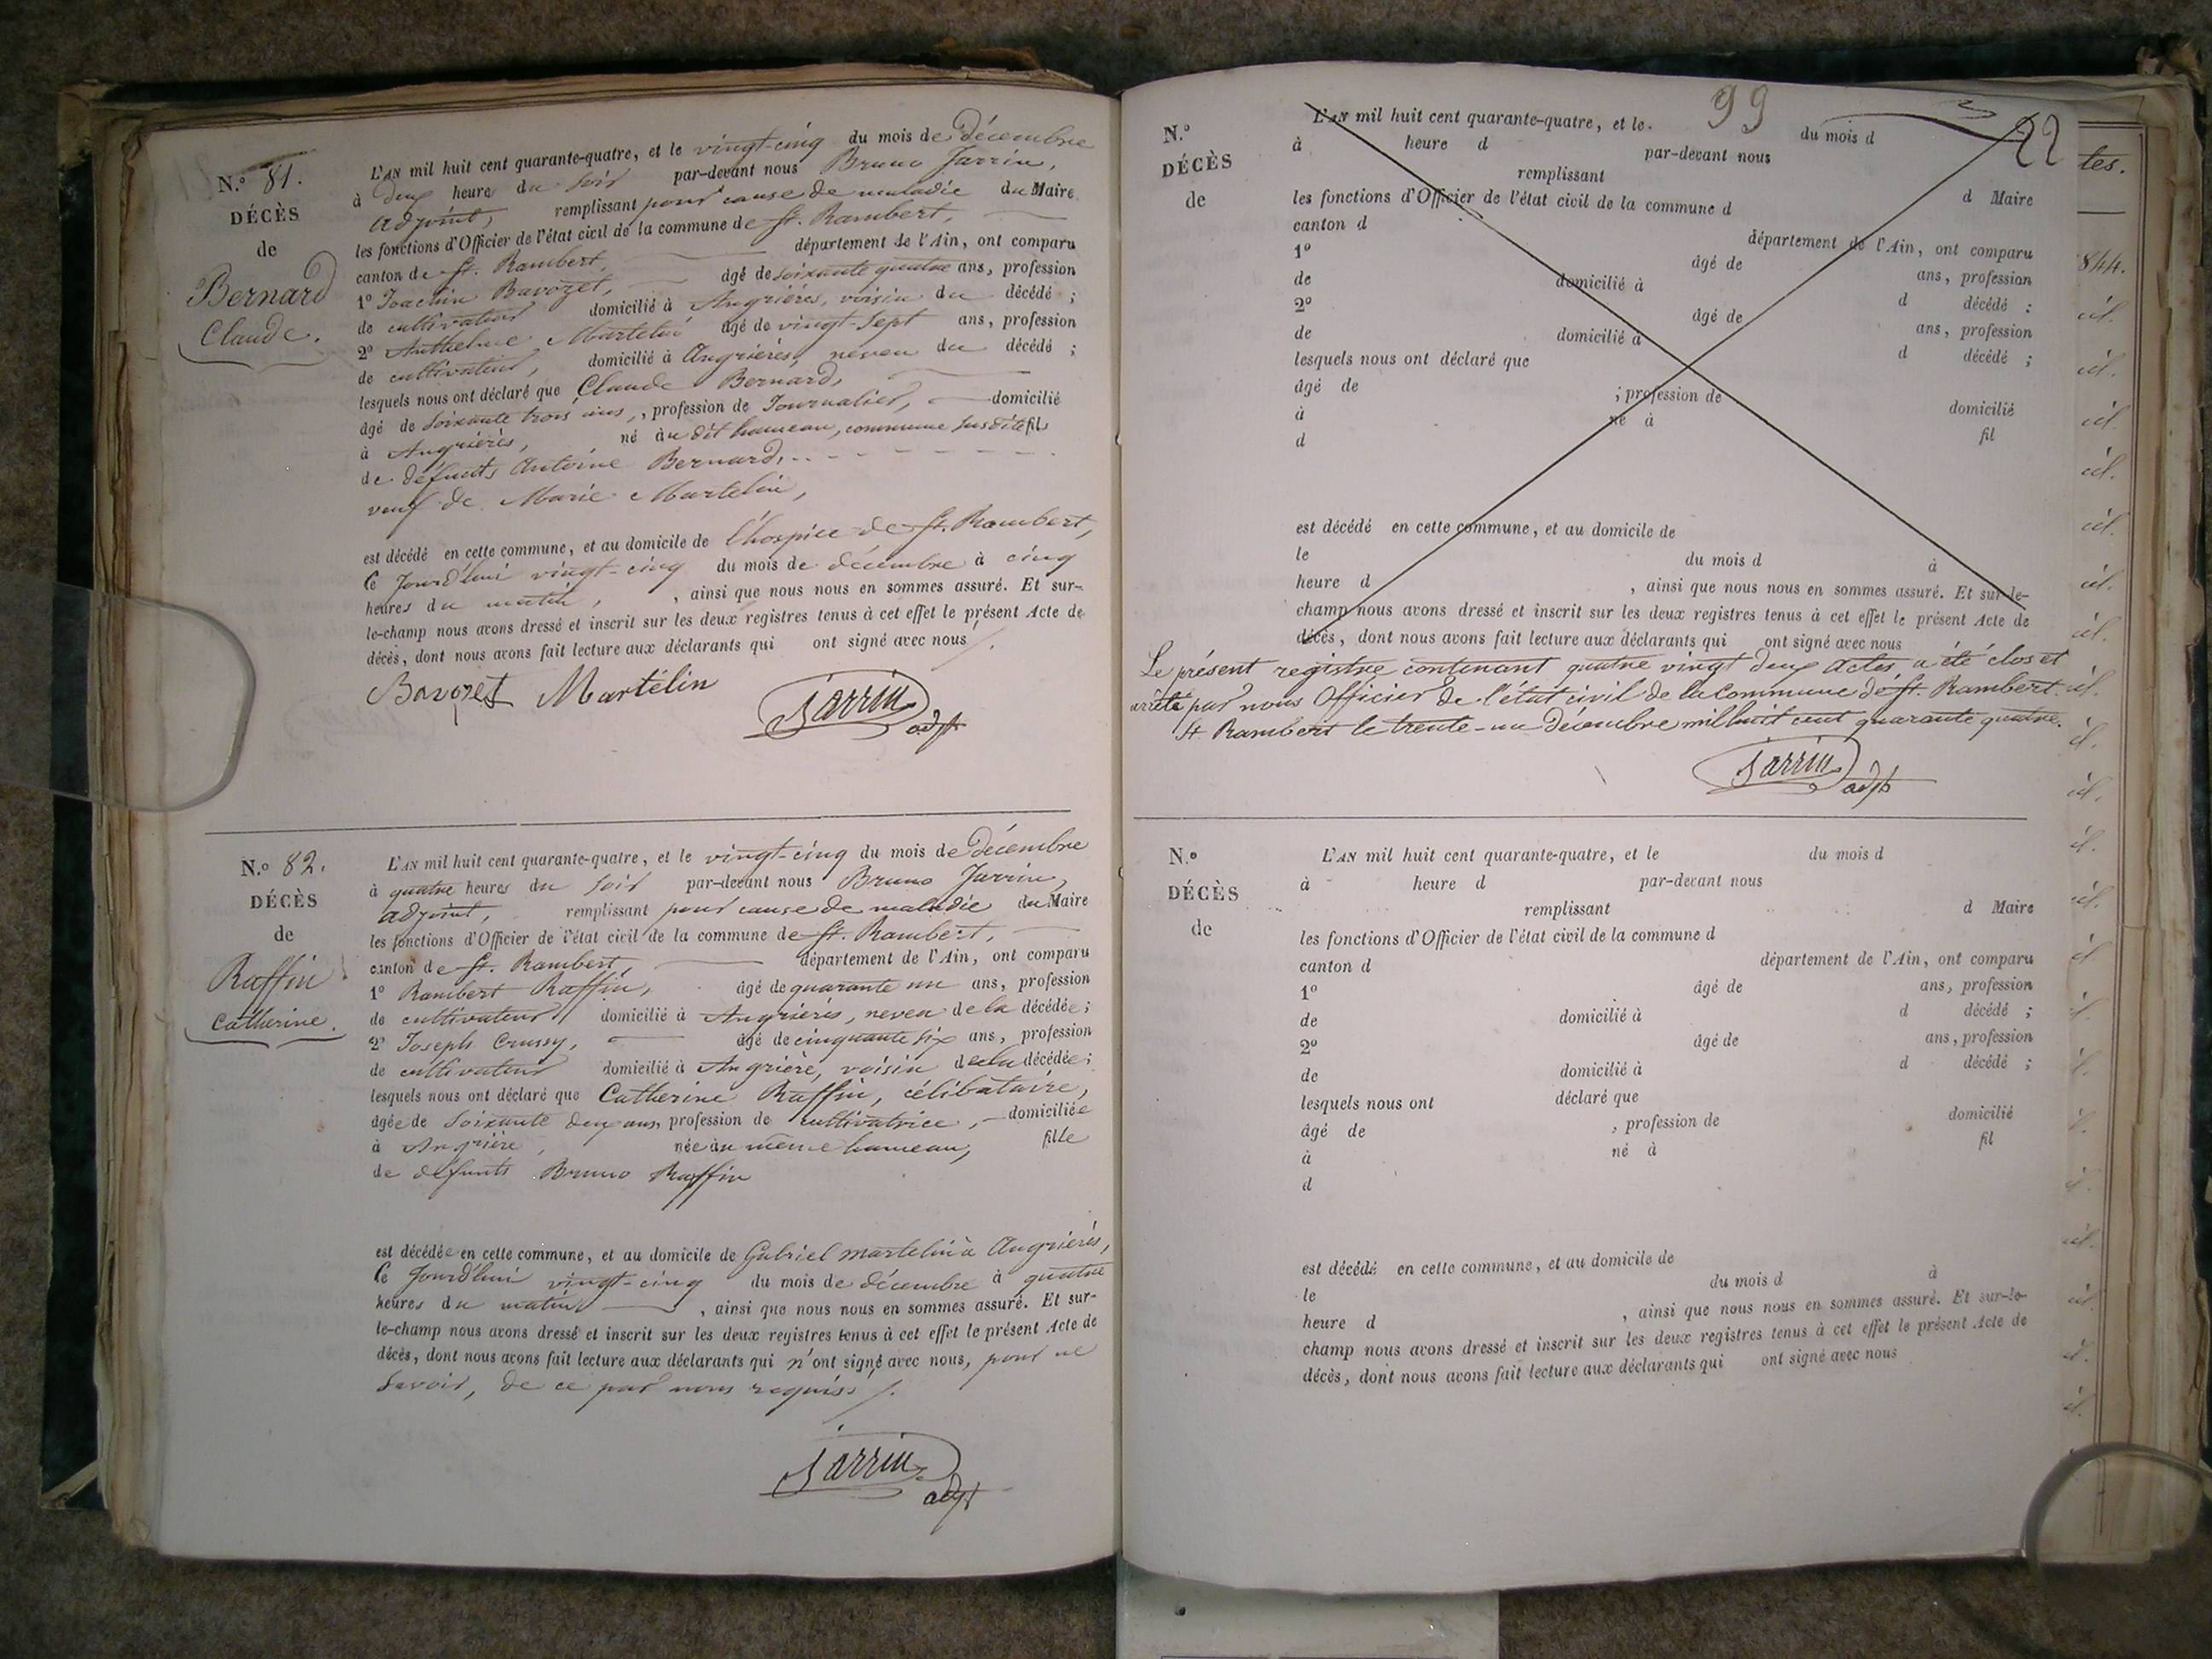 N.° 81.
DÉCÈS
de
Bernard
Claude.
L'AN mil huit cent quarante-quatre, et le vingt-cinq du mois de Décembre
à deux heures du soir par-devant nous Bruno Jarrin,
adjoint, remplissant pour cause de maladie du Maire
les fonctions d'Officier de l'état civil de la commune de St. Rambert,
canton de St. Rambert, département de l'Ain, ont comparu
1° Joachin Bavozet, âgé de soixante quatre ans, profession
de cultivateur domicilié à Angrières, voisin du décédé ;
2° Anthelme Martelin âgé de vingt-sept ans, profession
de cultivateur, domicilié à Angrières, neveu du décédé ;
lesquels nous ont déclaré que Claude Bernard,
âgé de soixante trois ans, , profession de Journalier, domicilié
à Angrières, né au dit hameau, commune susdite fils
de défunts Antoine Bernard,
veuf de Marie Martelin,
est décédé en cette commune, et au domicile de l'hospice de St. Rambert,
ce Jourd'hui vingt-cinq du mois de décembre à cinq
heures du matin, , ainsi que nous nous en sommes assuré. Et sur-
le-champ nous avons dressé et inscrit sur les deux registres tenus à cet effet le présent Acte de
décès, dont nous avons fait lecture aux déclarants qui ont signé avec nous
Bavozet Martélin Jarrin adjt
N.° 82.
DÉCÈS
de
Raffin
Catherine.
L'AN mil huit cent quarante-quatre, et le vingt-cinq du mois de Décembre
à quatre heures du soir par-devant nous Bruno Jarrin,
adjoint, remplissant pour cause de maladie du Maire
les fonctions d'Officier de l'état civil de la commune de St. Rambert,
canton de St. Rambert, département de l'Ain, ont comparu
1° Rambert Raffin, âgé de quarante un ans, profession
de cultivateur domicilié à Angrières, neveu de la décédée ;
2° Joseph Crussy, âgé de cinquante six ans, profession
de cultivateur domicilié à Angrière, voisin de la décédée ;
lesquels nous ont déclaré que Catherine Raffin, célibataire,
âgée de soixante deux ans, profession de cultivatrice, domiciliée
à Angrière, née au même hameau, fille
de défunts Bruno Raffin
est décédée en cette commune, et au domicile de Gabriel martelin à Angrières,
ce Jourd'hui vingt-cinq du mois de décembre à quatre
heures du matin , ainsi que nous nous en sommes assuré. Et sur-
le-champ nous avons dressé et inscrit sur les deux registres tenus à cet effet le présent Acte de
décès, dont nous avons fait lecture aux déclarants qui n'ont signé avec nous, pour ne
savoir, de ce par nous requis
Jarrin adjt
99
22
N.°
DÉCÈS
de
L'AN mil huit cent quarante-quatre, et le. du mois d
à heure d par-devant nous
remplissant d Maire
les fonctions d'Officier de l'état civil de la commune d
canton d département de l'Ain, ont comparu
1° âgé de ans, profession
de domicilié à d décédé ;
2° âgé de ans, profession
de domicilié à d décédé ;
lesquels nous ont déclaré que
âgé de ; profession de domicilié
à né à fil
d
est décédé en cette commune, et au domicile de
le du mois d à
heure d , ainsi que nous nous en sommes assuré. Et sur-le-
champ nous avons dressé et inscrit sur les deux registres tenus à cet effet le présent Acte de
décès, dont nous avons fait lecture aux déclarants qui ont signé avec nous
Le présent registre contenant quatre vingt deux actes a été clos et
arrêté par nous Officier de l'état civil de la Commune de St. Rambert.
St. Rambert le trente-un Décembre mil huit cent quarante quatre.
Jarrin adjt
N.°
DÉCÈS
de
L'AN mil huit cent quarante-quatre, et le du mois d
à heure d par-devant nous
remplissant d Maire
les fonctions d'Officier de l'état civil de la commune d
canton d département de l'Ain, ont comparu
1° âgé de ans, profession
de domicilié à d décédé ;
2° âgé de ans, profession
de domicilié à d décédé ;
lesquels nous ont déclaré que
âgé de , profession de domicilié
à né à fil
d
est décédé en cette commune, et au domicile de
le du mois d à
heure d , ainsi que nous nous en sommes assuré. Et sur-le-
champ nous avons dressé et inscrit sur les deux registres tenus à cet effet le présent Acte de
décès, dont nous avons fait lecture aux déclarants qui ont signé avec nous
tes.
844.